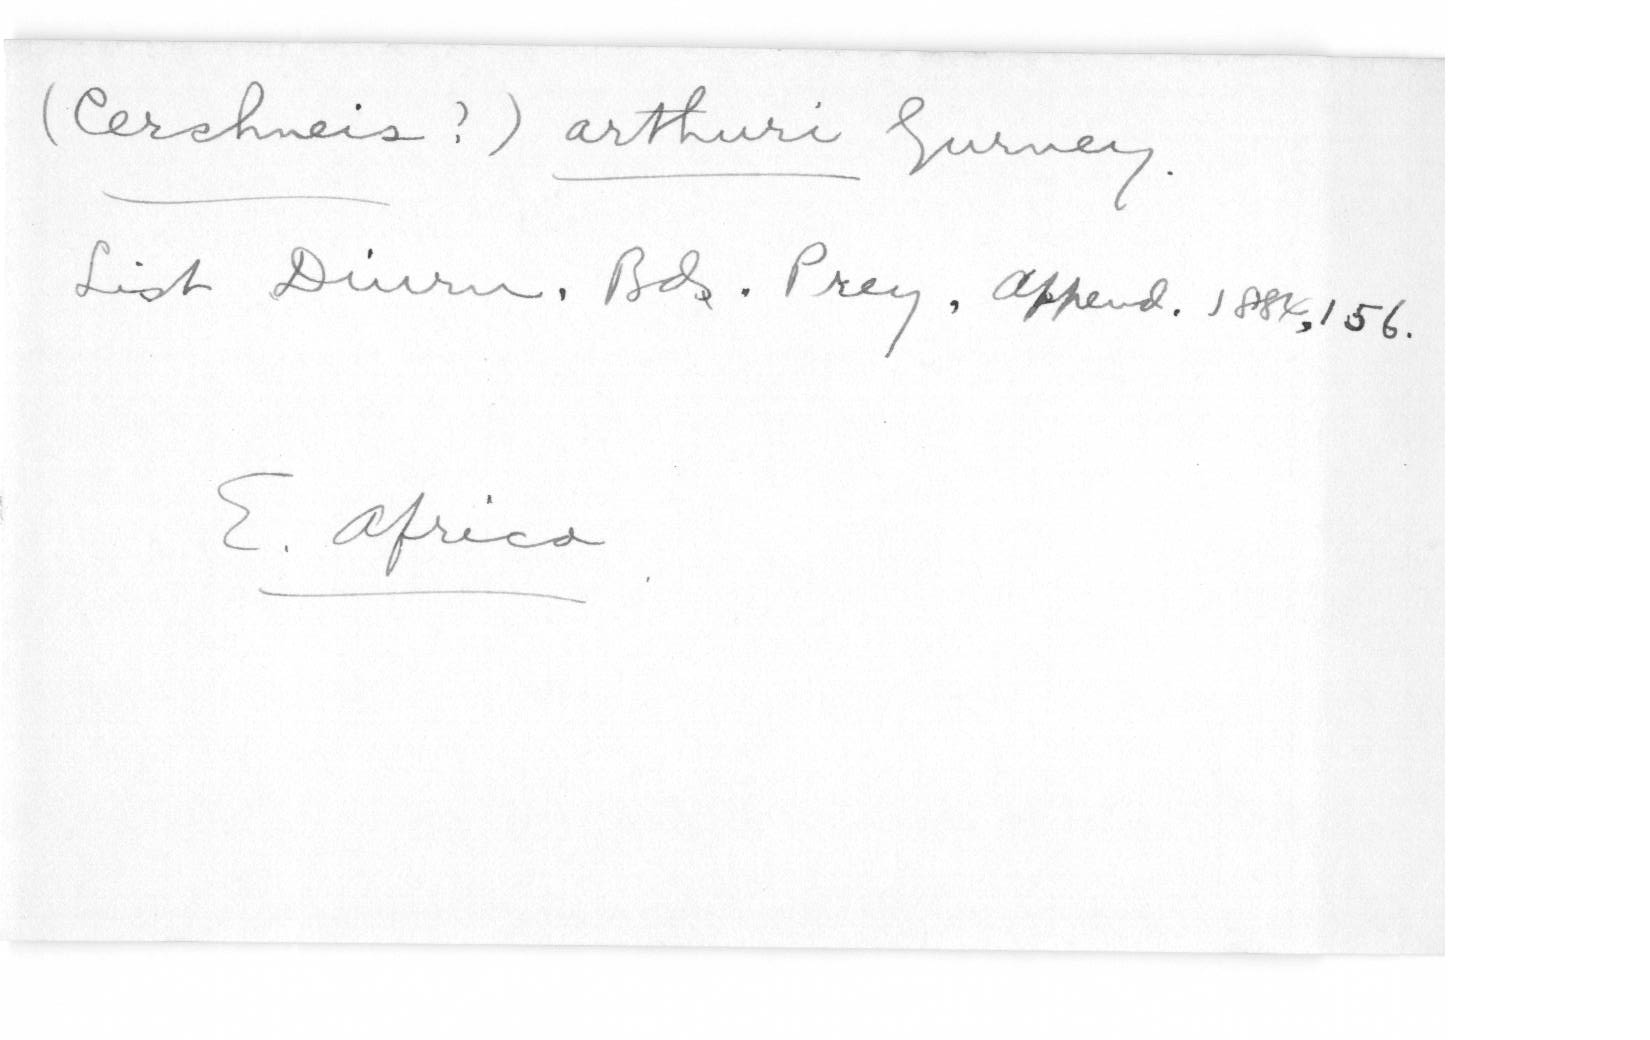 (Cerchneis?) arthuri Gurney.
List Diurn. Bds. Prey, Append. 1884, 156.
E. Africa